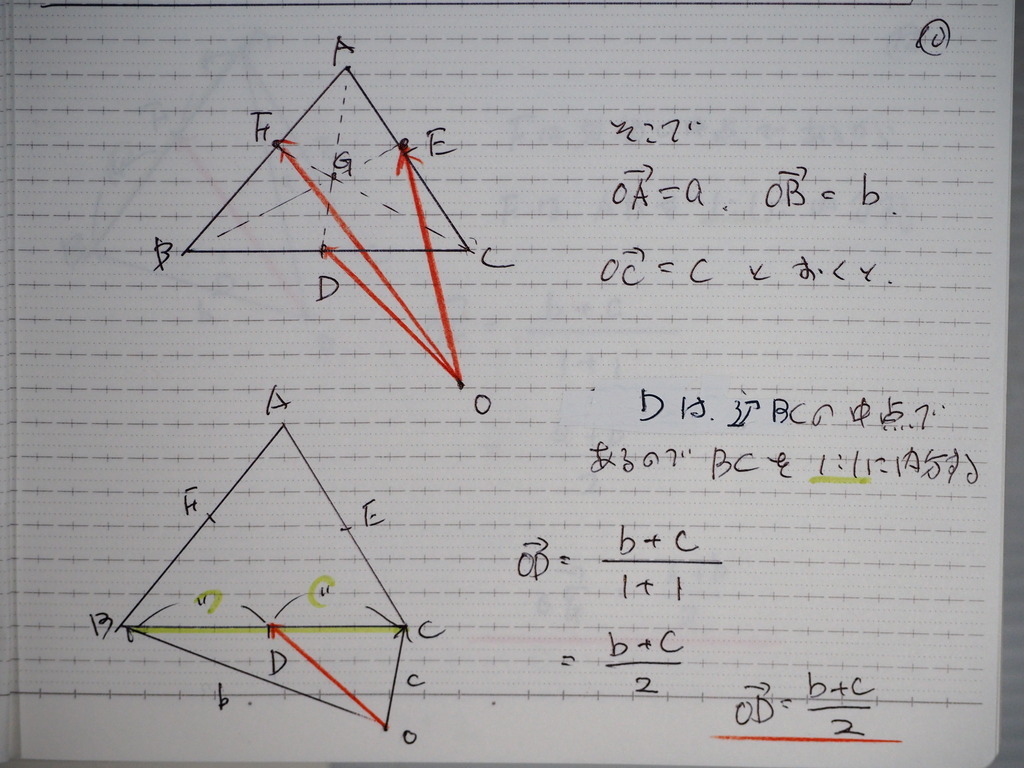 10
A
F
E
G
B
D
C
O
そこで
OA→=a. OB→=b.
OC→=c とおくと.
Dは. 辺BCの中点で
あるので BCを 1:1に内分する
A
F
E
〃 〃
B
D
C
b
c
O
OD→= b+c / 1+1
= b+c / 2
OD→= b+c / 2